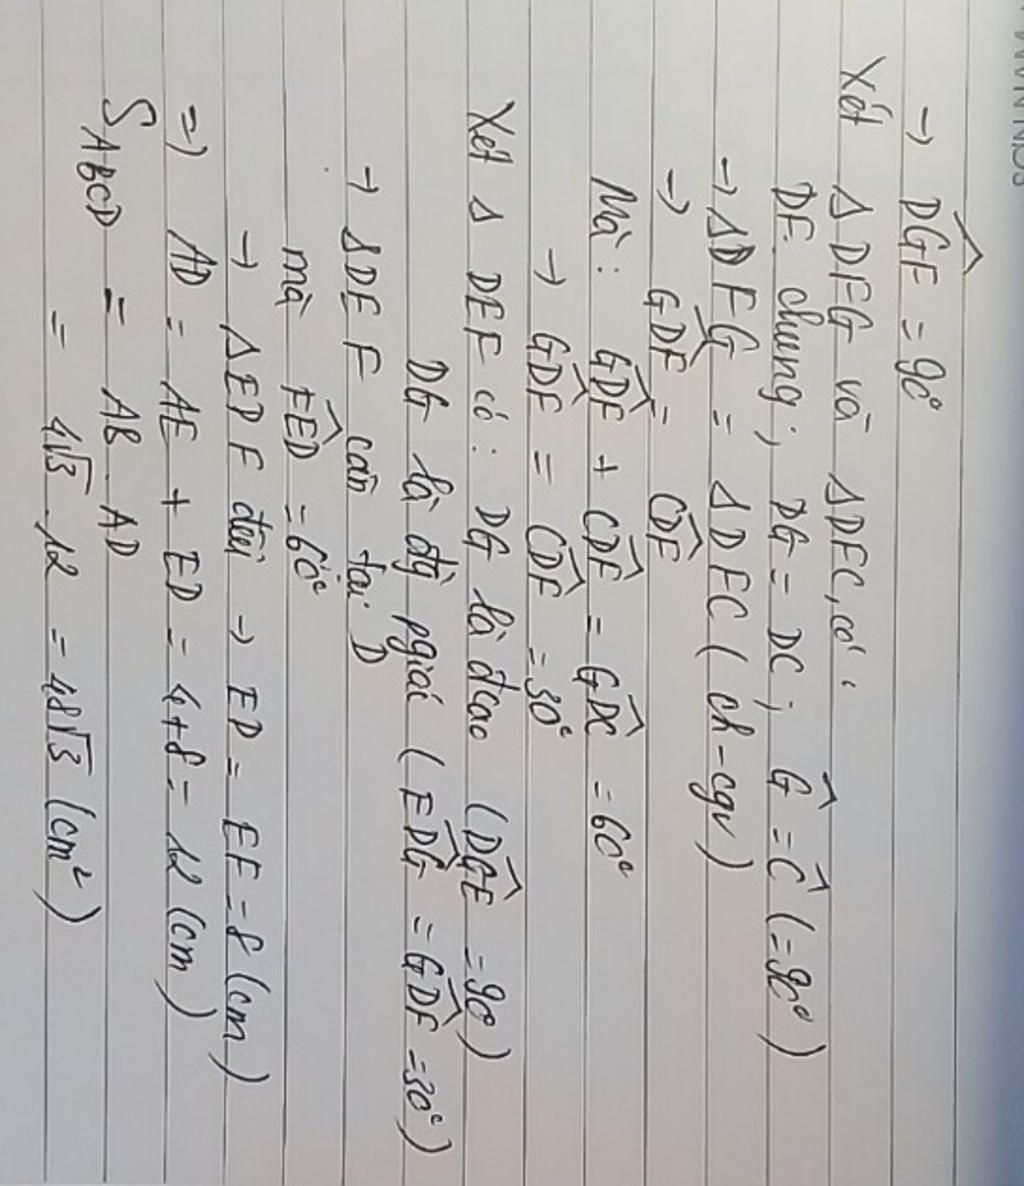 → \widehat{DGF} = 90°
Xét Δ DFG và Δ DFC, có:
DF chung; DG = DC; Ĝ = Ĉ (= 90°)
→ Δ DFG = Δ DFC (ch - cgv)
→ \widehat{GDF} = \widehat{CDF}
Mà: \widehat{GDF} + \widehat{CDF} = \widehat{GDC} = 60°
→ \widehat{GDF} = \widehat{CDF} = 30°
Xét Δ DEF có: DG là đcao (\widehat{DGE} = 90°)
DG là đg pgiác (\widehat{EDG} = \widehat{GDF} = 30°)
→ Δ DEF cân tại D
mà \widehat{FED} = 60°
→ Δ EDF đều → ED = EF = 8 (cm)
=) AD = AE + ED = 4 + 8 = 12 (cm)
S_{ABCD} = AB . AD
= 4√3 . 12 = 48√3 (cm²)